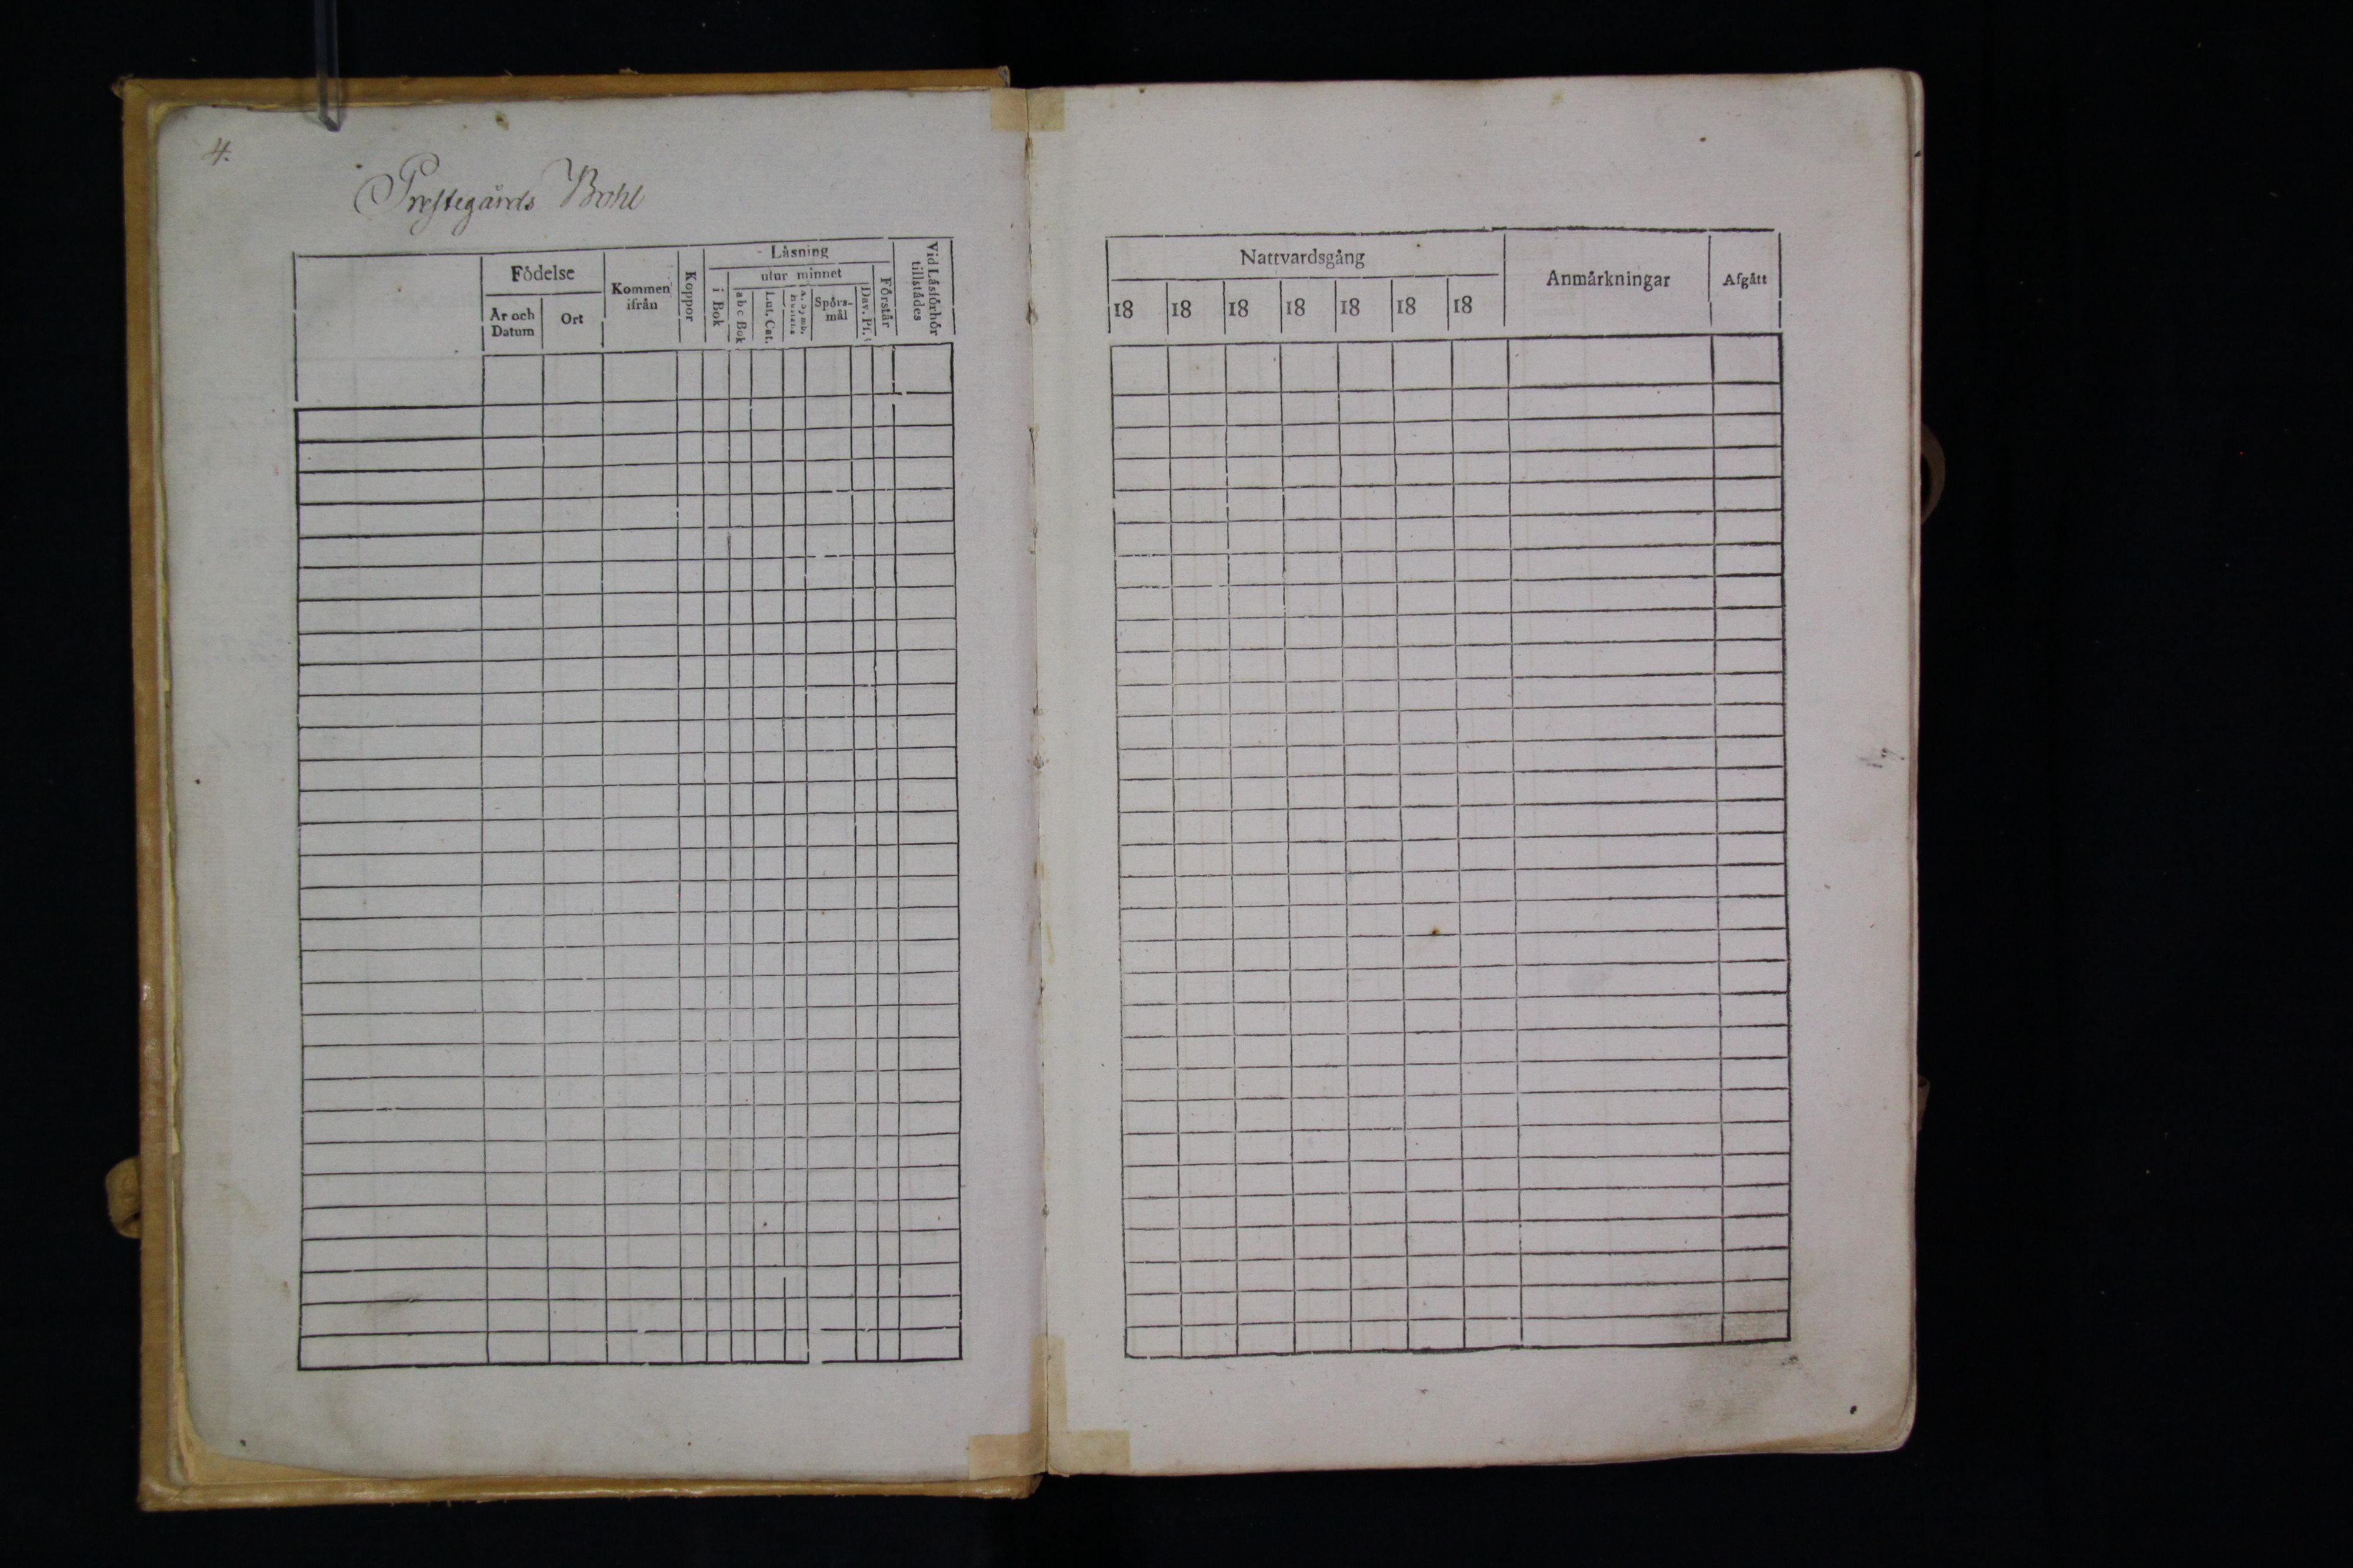 4.
Prestegårds Bohl
Födelse
År och Datum
Ort
Kommen ifrån
Koppor
Läsning
i Bok
utur minnet
a b c Bok
Lut. Cat.
Spörs-mål
Dav. Ps.
Förstår
Vid Läsförhör tillstädes
Nattvardsgång
18 18 18 18 18 18 18
Anmärkningar
Afgått